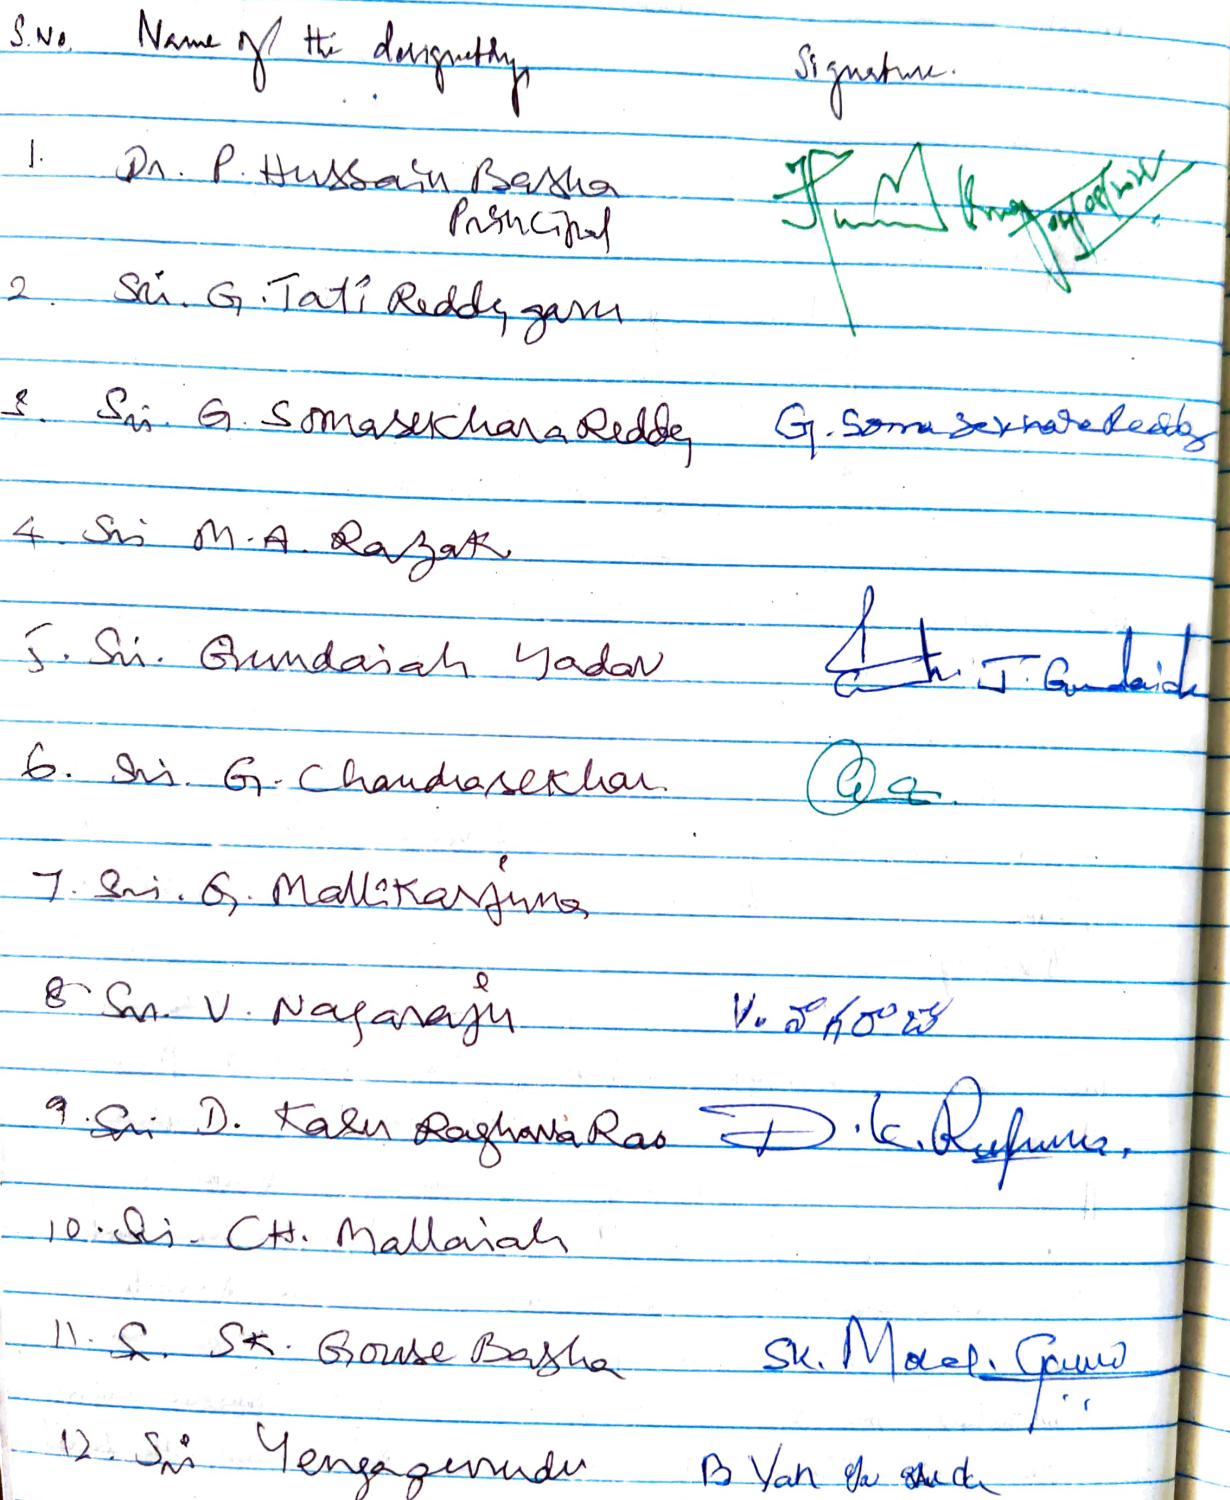 S.No. Name of the Signature.
1. Dr. P. Hussain Basha
Principal
2. Sri. G. Tati Reddy garu
3. Sri. G. Somasekhara Reddy G. Somasekhara Reddy
4. Sri M.A. Razak
5. Sri. Gundaiah Yadav J. Gundaiah
6. Sri. G. Chandrasekhar
7. Sri. G. Mallikarjuna
8 Sri. V. Nagaraju V. నాగరాజు
9. Sri D. Kasu Raghava Rao D.K.
10. Sri. CH. Mallaiah
11. S. SK. Gouse Basha SK.
12. Sri Yengagurudu B